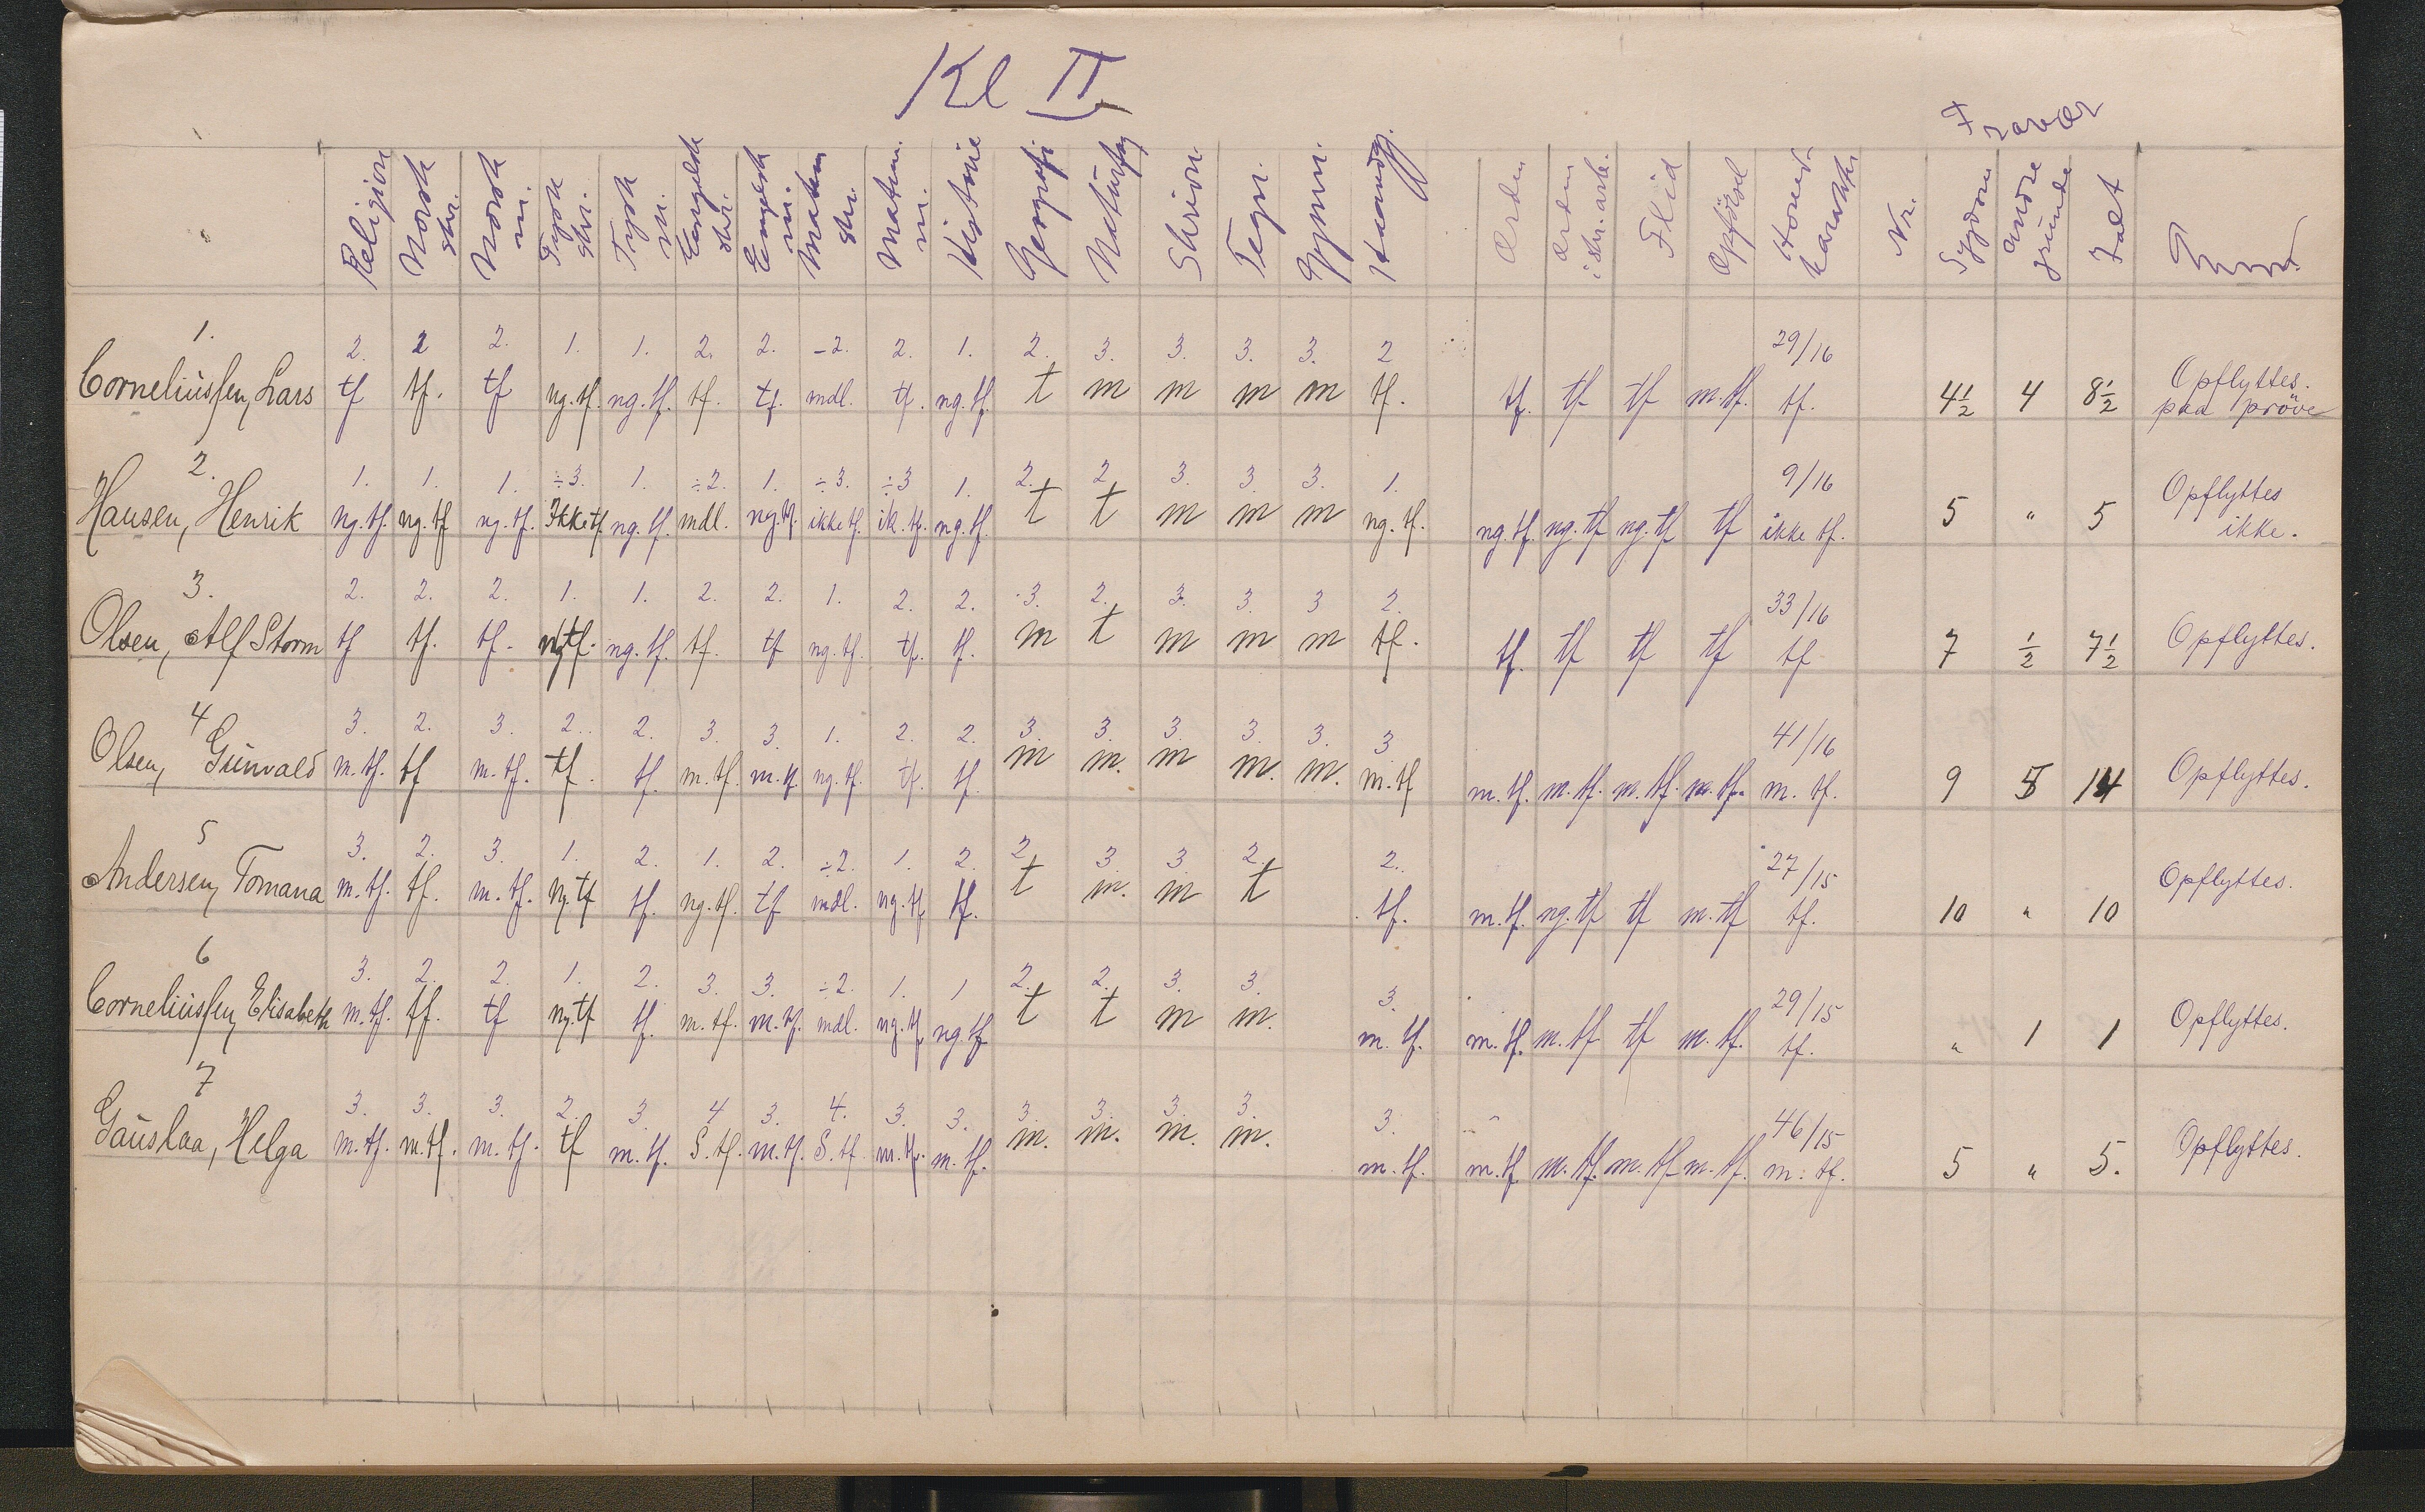 Kl II
Fravær
Religion Norsk skr. Norsk m. Tysk skr. Tysk m. Engelsk skr. Engelsk m. Matem skr. Matem. m. Historie Geografi Naturfag Skrivn. Tegn. Gymn. Haandgj. Orden Orden i skr. arb. Flid Opförsel Hoved karakter Nr. Sygdom andre grunde Ialt
1. 2. 2 2. 1. 1. 2. 2. -2. 2. 1. 2. 3. 3. 3. 3. 2 29/16
Corneliusſen, Lars tf tf. tf ng.tf. ng.tf. tf. tf. mdl. tf. ng.tf. t m m m m tf. tf. tf tf m.tf. tf. 4½ 4 8½ Opflyttes. paa pröve
2. 1. 1. 1. ÷3. 1. ÷2. 1. ÷3. ÷3 1. 2. 2 3. 3. 3. 1. 9/16
Hansen, Henrik ng.tf. ng.tf ng.tf. Ikke tf ng.tf. mdl. ng.tf. ikke tf. ik.tf. ng.tf. t t m m m ng.tf. ng.tf. ng.tf ng.tf tf ikke tf. 5 " 5 Opflyttes ikke.
3. 2. 2. 2. 1. 1. 2. 2. 1. 2. 2. 3. 2. 3. 3. 3 2. 33/16
Olsen, Alf Storm tf tf. tf. ng tf. ng.tf. tf. tf ng.tf. tf. tf. m t m m m tf. tf. tf tf tf tf 7 ½ 7½ Opflyttes.
4 3. 2. 3. 2.. 2. 3. 3. 1. 2. 2. 3. 3. 3. 3. 3. 3 41/16
Olsen, Gunvald m.tf. tf m.tf. tf. tf. m.tf. m.tf ng.tf. tf. tf. m m. m m. m. m.tf m.tf. m.tf. m.tf. m.tf. m.tf. 9 5 14 Opflyttes.
5 3. 2. 3. 1. 2. 1. 2. ÷2. 1. 2. 2. 3 3 2. 2.. 27/15
Andersen, Tomana m.tf. tf. m.tf. ng.tf tf. ng.tf. tf mdl. ng.tf tf. t m. m t tf. m.tf. ng.tf tf m.tf tf. 10 " 10 Opflyttes.
6 3. 2. 2. 1. 2. 3. 3. ÷2. 1. 1 2. 2. 3. 3. 3. 29/15
Corneliusſen, Elisabeth m.tf. tf. tf ng.tf tf. m.tf. m.tf. mdl. ng.tf. ng.tf t t m m. m.tf. m.tf. m.tf tf m.tf. tf. " 1 1 Opflyttes.
7 3. 3. 3. 2. 3. 4 3. 4. 3. 3. 3. 3. 3. 3. 3. 46/15
Gauslaa, Helga m.tf. m.tf. m.tf. tf m.tf. S.tf. m.tf. S.tf. m.tf. m.tf. m. m. m. m. m.tf. m.tf. m.tf. m.tf m.tf. m.tf. 5 " 5. Opflyttes.